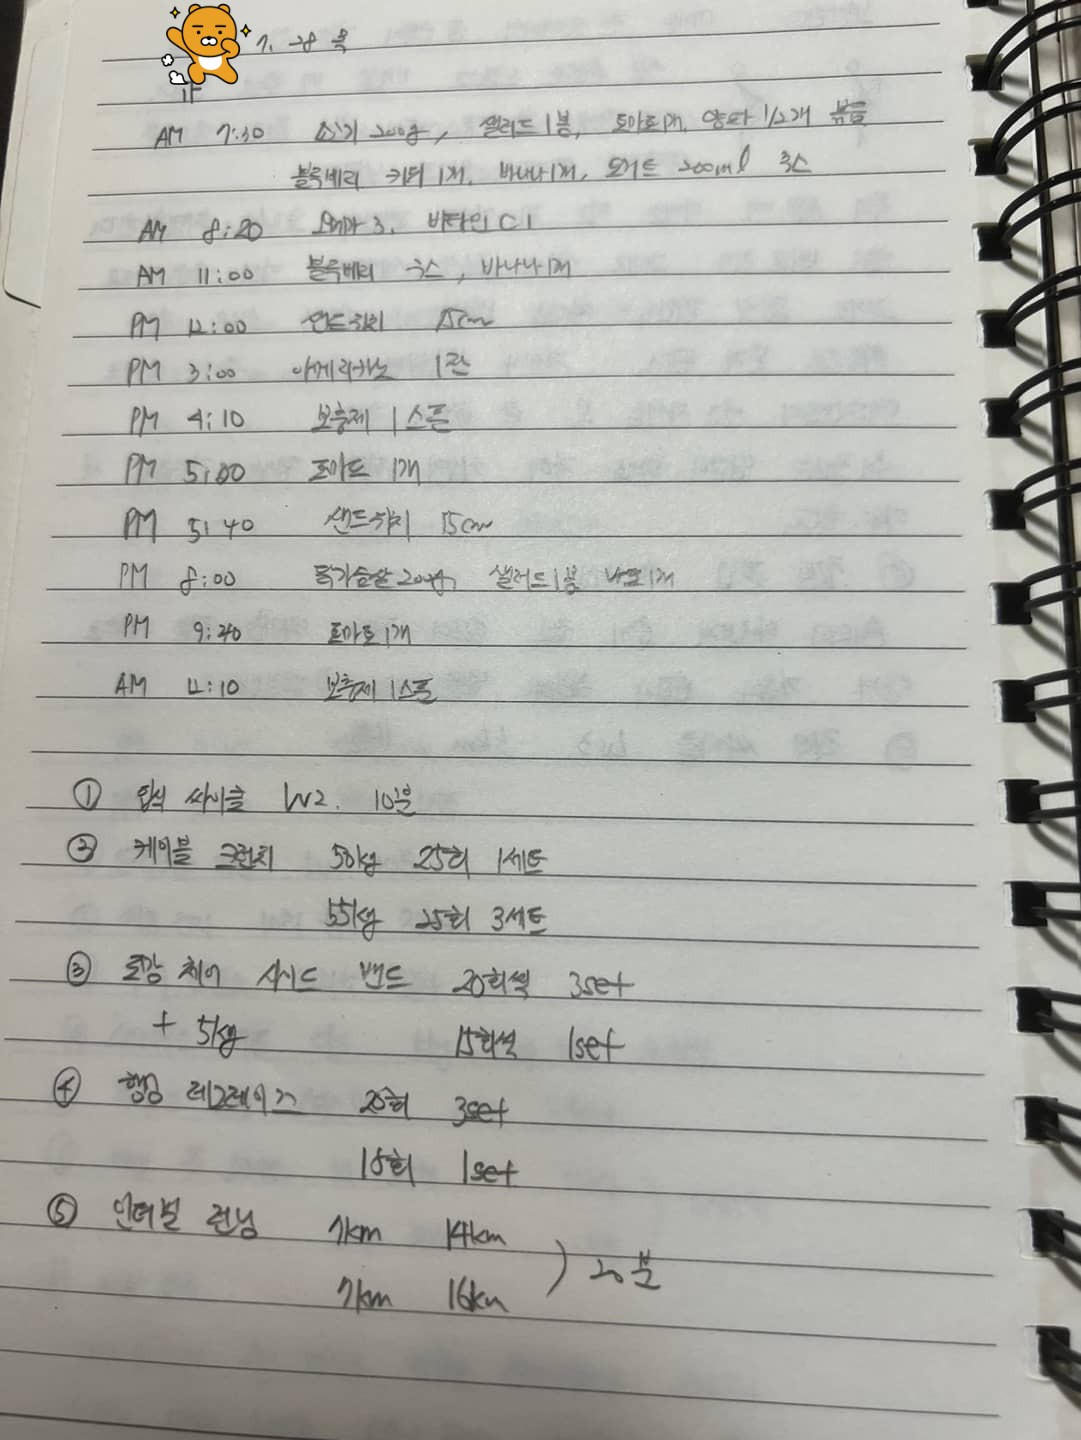 7. 28 목
AM 7:30 소고기 200g, 샐러드 1봉, 토마토 1개, 양파 1/2개 볶음
블루베리 키위 1개, 바나나 1개, 오트 200ml 쥬스
AM 8:20 오메가 3, 비타민 C 1
AM 11:00 블루베리 쥬스, 바나나 1개
PM 12:00 샌드위치 15cm
PM 3:00 아메리카노 1잔
PM 4:10 보충제 1스푼
PM 5:00 토마토 1개
PM 5:40 샌드위치 15cm
PM 8:00 닭가슴살 200g, 샐러드 1봉 1개
PM 9:20 토마토 1개
AM 12:10 보충제 1스푼
① 입식 싸이클 LV2. 10분
② 케이블 크런치 50kg 25회 1세트
55kg 25회 3세트
③ 로망 체어 사이드 밴드 20회씩 3set
+ 5kg 15회씩 1set
④ 행잉 레그레이즈 20회 3set
15회 1set
⑤ 인터벌 런닝 7km 14km
7km 16km ) 20분